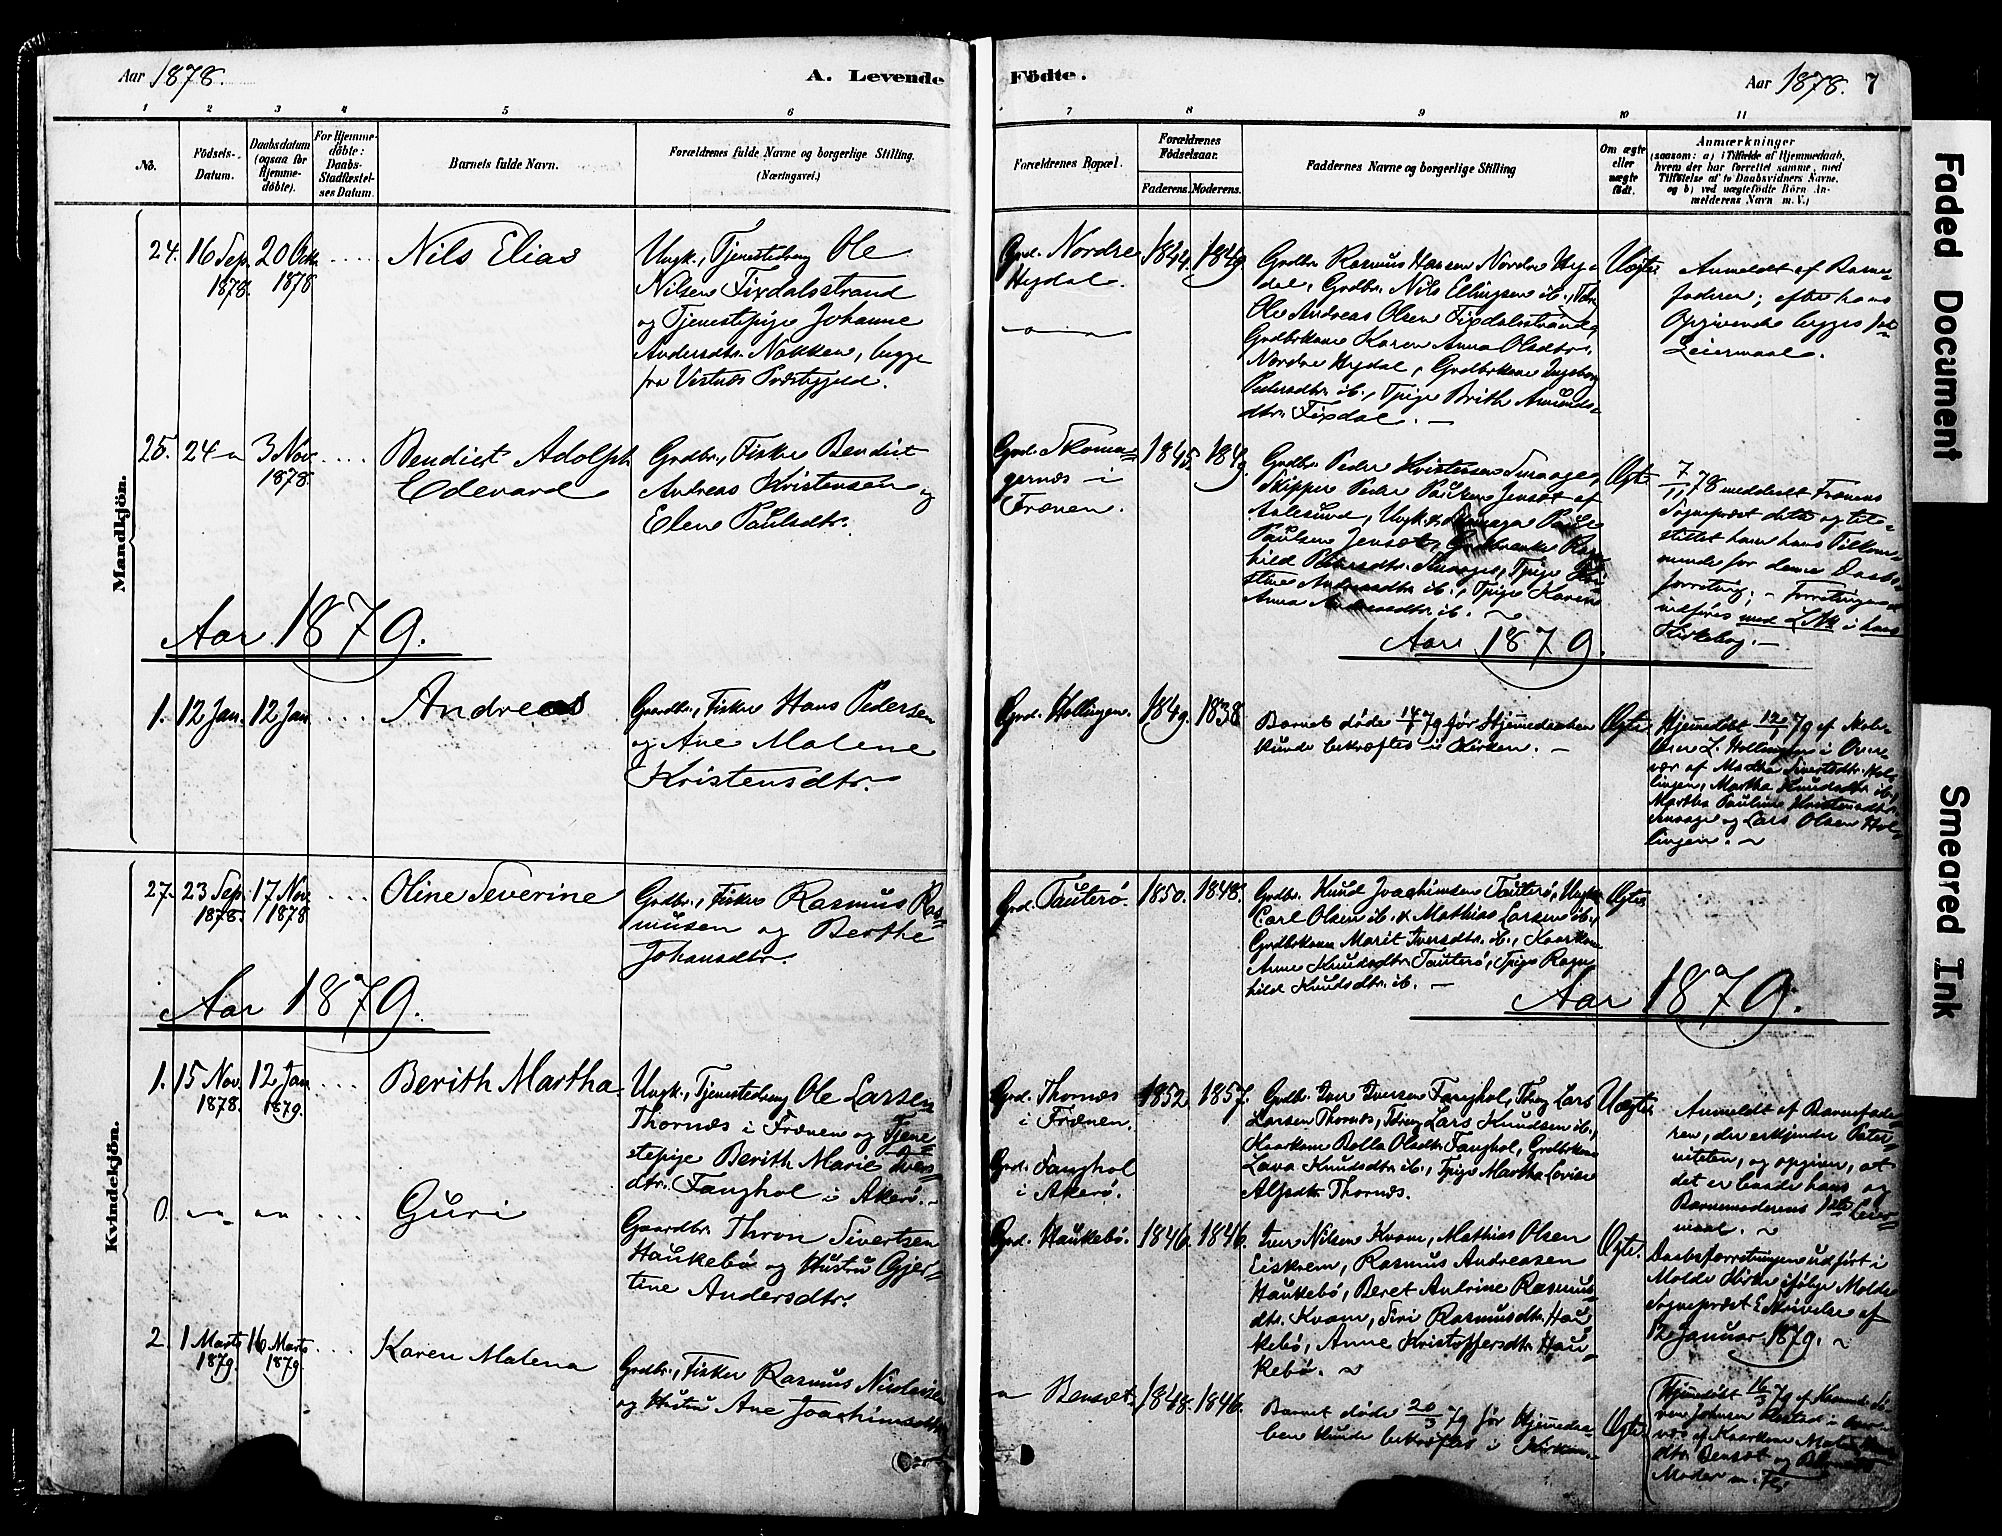 Aar 1878.
A. Levende
Födte.
Aar 1878. 7
1 2 3 4 5 6
7 8 9 10 11
No.
Födsels-
Datum.
Daabsdatum
(ogsaa for
Hjemme-
döbte).
For Hjemme-
döbte:
Daabs-
Stadfæstel-
ses Datum.
Barnets fulde Navn.
Forældrenes fulde Navne og borgerlige Stilling.
(Næringsvei.)
Forældrenes Bopæl.
Forældrenes
Födselsaar.
Faderens. Moderens.
Faddernes Navne og borgerlige Stilling
Om ægte
eller
uægte
födt.
Anmærkninger
(saasom: a) i Tilfælde af Hjemmedaab,
hvem der har forrettet samme, med
Tilföielse af to Daabsvidners Navne,
og b) ved uægtefödte Börn An-
melderens Navn m. V.)
Mandkjön.
24. 16 Sep. 1878. 20 Octr. 1878 Nils Elias
Ungk., Tjenestedreng Ole
Nilsen Fixdalsstrand
og Tjenestepige Johanne
Andersdtr. Nakken, begge
fra Vestnæs Præstegjeld.
Grd. Nordre
Hegdal.
1844. 1849.
Grdbr. Rasmus Hansen Nordre Heg-
dal, Grdbr. Nils Ellingsen ib.,
Ole Andreas Olsen Fixdalsstrand,
Grdbrkone Karen Anna Olsdtr.
Nordre Hegdal, Grdbrkone Ingeborg
Pedersdtr. ib., Tpige Brith Amunds-
dtr. Fixdal. —
Uægte
Anmeldt af Barne-
faderen; efter hans
Opgivende begges 1ste
Leiermaal.
25. 24 — 3 Nov. 1878. Bendict Adolph
Edevard
Grdbr., Fisker Bendict
Andreas Kristensen og
Elene Paulsdtr.
Grd. Skoma-
gernæs i
Frænen.
1845. 1849.
Grdbr. Peder Kristensen Smaage,
Skipper Peder Paulsen Jenset af
Aalesund, Ungk.
Paulsen Jenset,
hild Pedersdtr. Smaage, Tpige
stine Andreasdtr. ib., Tpige Karen
Anna Andreasdtr. ib.
Ægte
7/11 78 meddeelt Frænens
Sognepræst dette og tile-
stillet ham hans Tilkom-
mende for denne Daabs-
forretning; — Forretningen
indføres med L. No i hans
Kirkebog. —
Aar 1879.
Aar 1879.
1. 12 Jan. 12 Jan Andreas
Gaardbr., Fisker Hans Pedersen
og Ane Malene
Kristensdtr.
Grd. Hollingen.
1849. 1838.
Barnet døde 14/1 79 før Hjemmedaaben
kunde bekræftes i Kirken. —
Ægte
Hjemmedøbt 12/1 79 af
L. Hollingen i Over-
vær af Martha Sivertsdtr. Hol-
lingen, Martha Knudsdtr. ib.,
Martha Pauline Kristensdtr.
Smaage og Lars Olsen Hol-
lingen.
Kvindekjön.
27. 23 Sep. 1878. 17 Nov. 1878 Oline Severine
Grdbr., Fisker Rasmus Ras-
musen og Berthe
Johansdtr.
Grd. Tauterö.
1850. 1848.
Grdbr. Knud Joachimsen Tauterö, Ungk.
Carl Olsen ib. & Mathias Larsen ib.,
Grdbrkone Marit Iversdtr. ib., Kaarkone
Anne Knudsdtr. Tauterö, Tpige Ragn-
hild Knudsdtr. ib. —
Ægte.
Aar 1879.
Aar 1879.
1. 15 Nov. 1878. 12 Jan 1879. Berith Martha
Ungk., Tjenestedreng Ole Larsen
Thornæs i Frænen og Tjene-
stepige Berith Marie Ivers-
dtr. Fanghol i Akerö. —
Grd. Thornæs
i Frænen.
Grd. Fanghol
i Akerö.
1852 1857.
Grdbr. Iver Iversen Fanghol, Tdreng Lars
Larsen Thornæs, Tdreng Lars Knudsen ib.,
Kaarkone Bolla Olsdtr. Fanghol, Grdbrkone
Lava Knudsdtr. ib., Tpige Martha Lovise
Alfsdtr. Thornæs.
Uægte
Anmeldt af Barnefade-
ren, der erkjender Pater-
niteten, og opgiver, at
det er baade hans og
Barnemoderens 1ste Leier-
maal.
0. Guri
Gaardbr. Thron Sivertsen
Haukebö og Hustru Gjer-
tine Andersdtr.
Grd. Haukebö.
1846. 1846.
Iver Nilsen Kvam, Mathias Olsen
Eiskrem, Rasmus Andreasen
Haukebö, Beret Antrine Rasmus-
dtr. Kvam, Siri Rasmusdtr. Hau-
kebö, Anne Kristoffersdtr. Hau-
kebö.
Ægte.
Daabsforretningen udført i
Molde Kirke ifølge Molde
Sognepræst Skrivelse af
12 Januar 1879.
2. 1 Marts 1879. 16 Marts 1879. Karen Malena
Grdbr., Fisker Rasmus Nicolaisen
og Hustru Ane Joachimsdtr.
Benset.
1848. 1846.
Barnet døde 20/3 79 før Hjemmedaa-
ben kunde bekræftes i Kirken.
Ægte.
Hjemmedøbt 16/3 79 af
Johnsen i Over-
vær af Kaarkone
dtr. Benset og
Moder m. Fl.
Faded Document
Smeared Ink